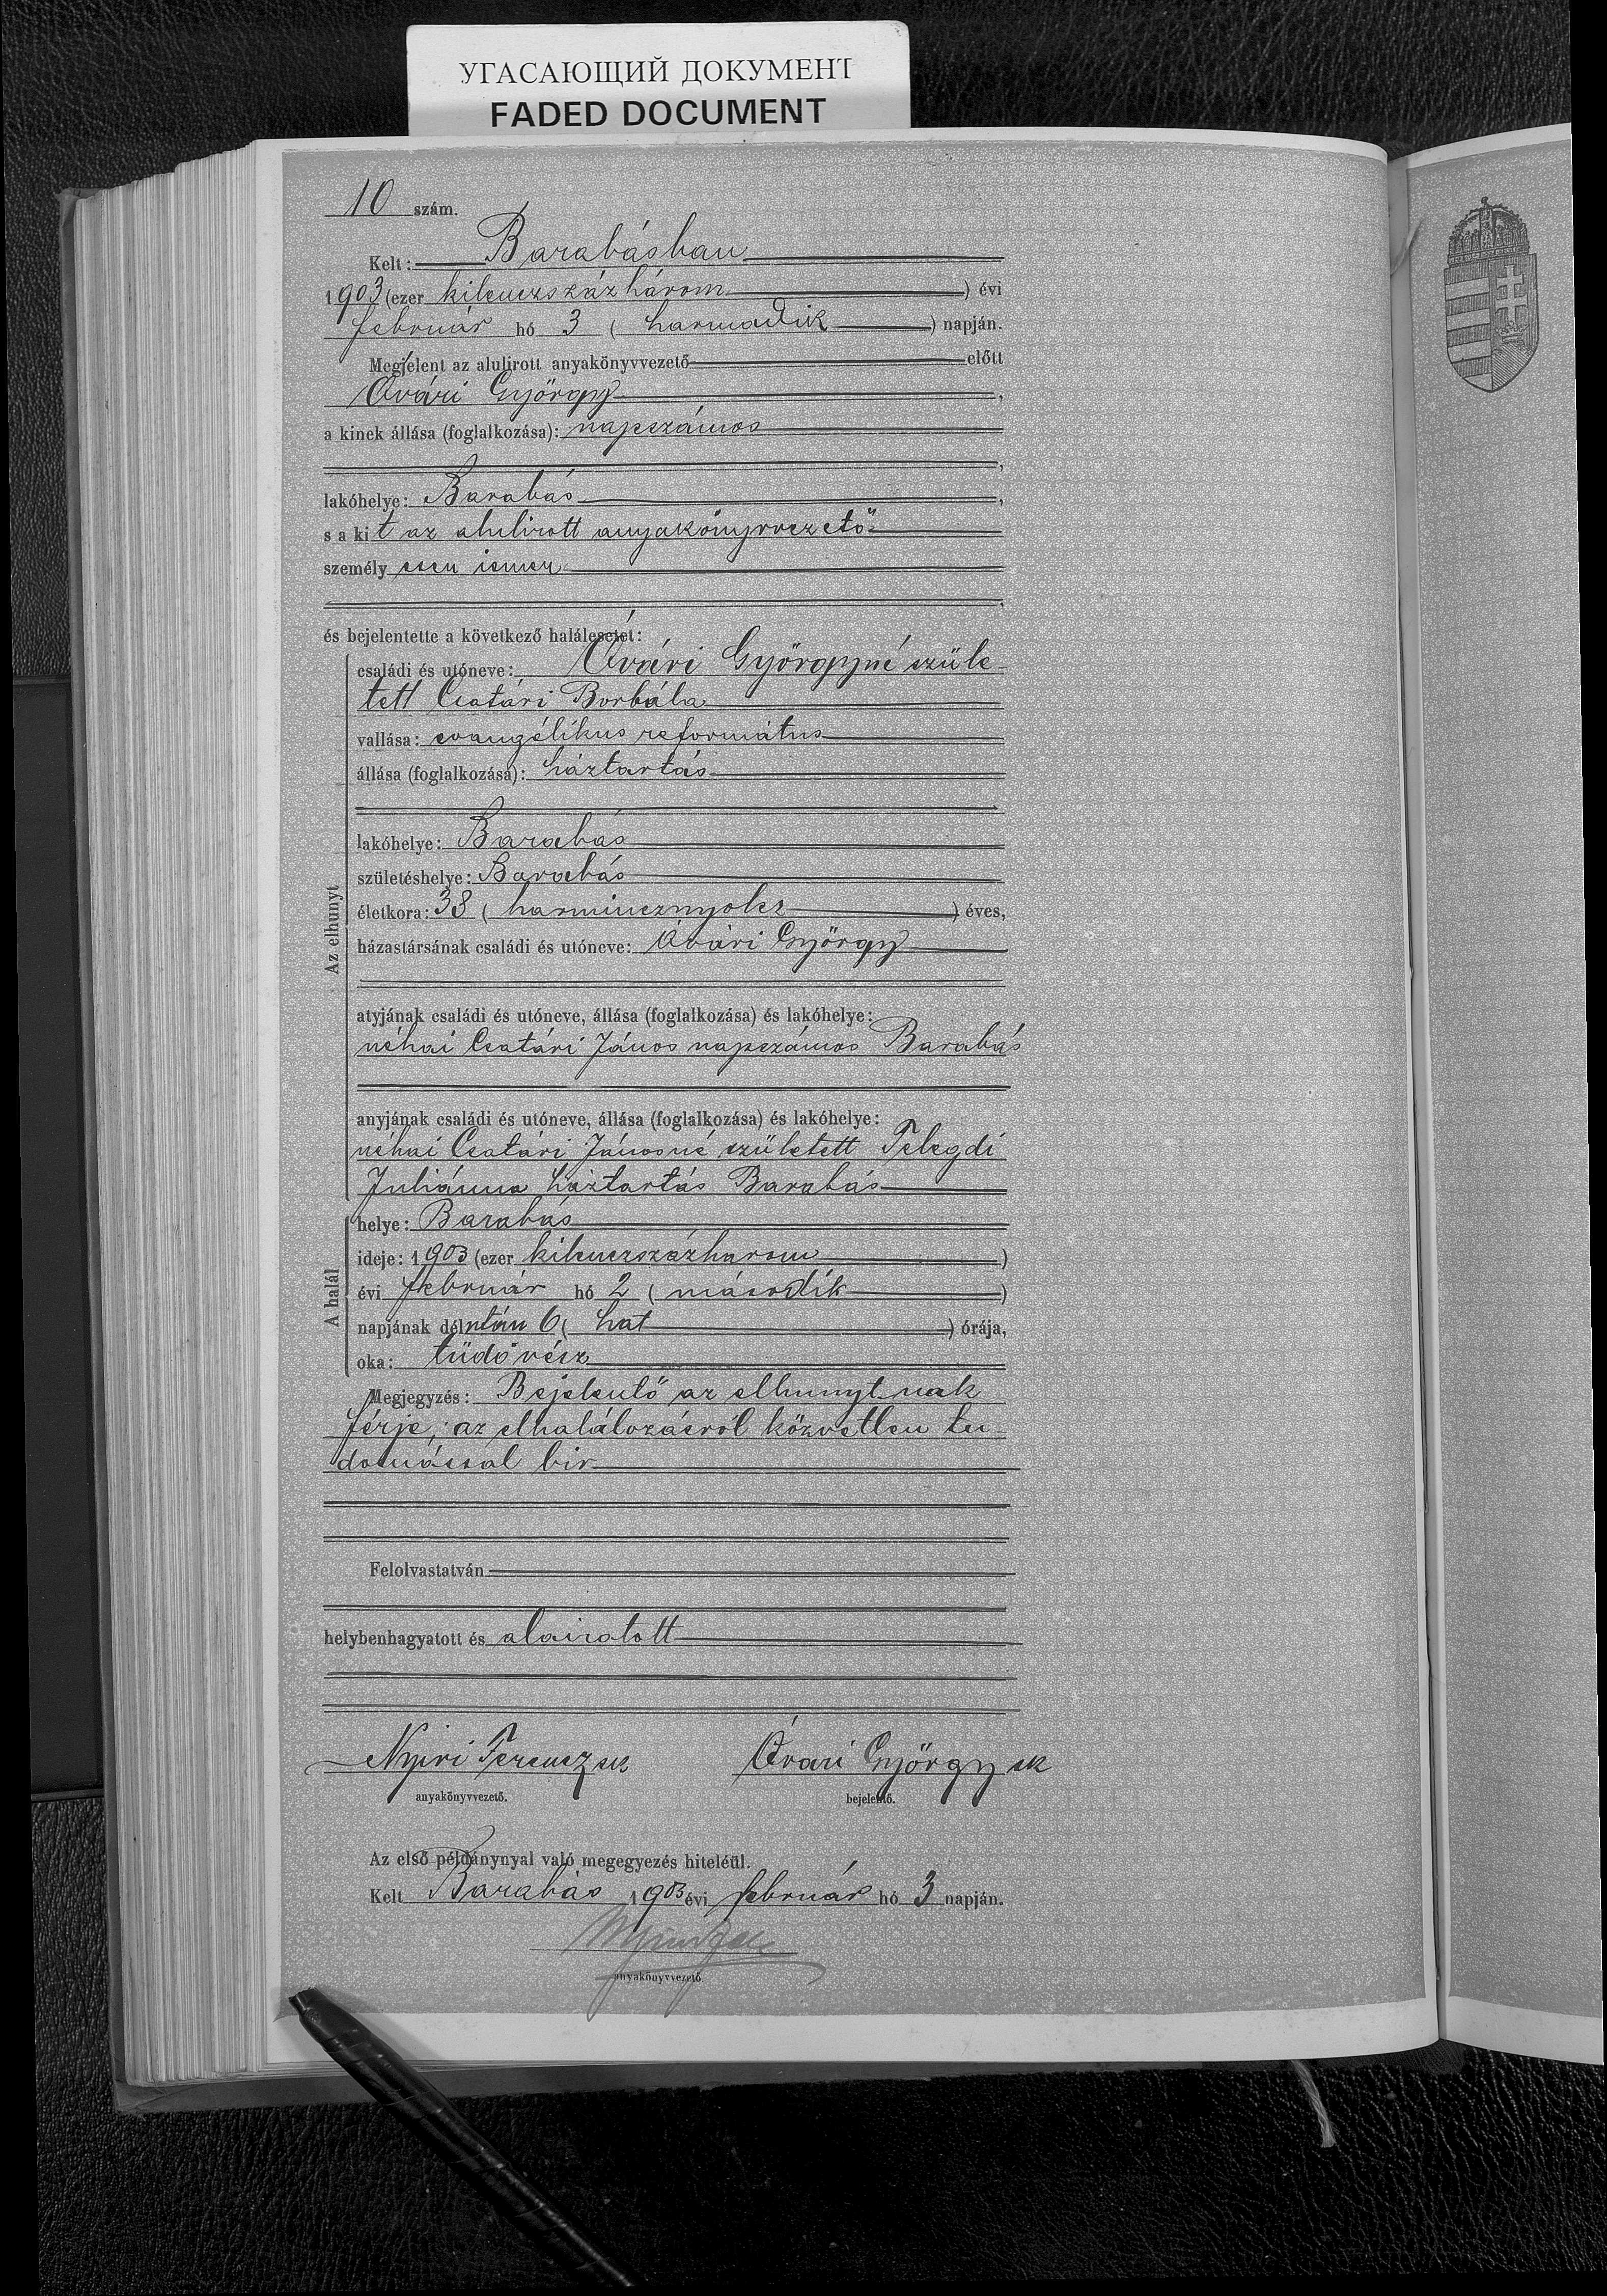 УГАСАЮЩИЙ ДОКУМЕНТ
FADED DOCUMENT
10 szám.
Kelt: Barabásban
1903 (ezer kilenczszázhárom) évi
február hó 3 (harmadik) napján.
Megjelent az alulirott anyakönyvvezető előtt
Óvári György,
a kinek állása (foglalkozása): napszámos
,
lakóhelye: Barabás,
s a kit az alulirott anyakönyvvezető
személyesen ismer
,
és bejelentette a következő halálesetet:
Az elhunyt
családi és utóneve: Óvári Györgyné szüle-
tett Csatári Borbála
vallása: evangélikus református
állása (foglalkozása): háztartás
lakóhelye: Barabás
születéshelye: Barabás
életkora: 38 (harmincznyolcz) éves,
házastársának családi és utóneve: Óvári György
atyjának családi és utóneve, állása (foglalkozása) és lakóhelye:
néhai Csatári János napszámos Barabás
anyjának családi és utóneve, állása (foglalkozása) és lakóhelye:
néhai Csatári Jánosné született Telegdi
Juliánna háztartás Barabás
A halál
helye: Barabás
ideje: 1903 (ezer kilenczszázhárom)
évi február hó 2 (második)
napjának délután 6 (hat) órája,
oka: tüdővész
Megjegyzés: Bejelentő az elhunytnak
férje; az elhalálozásról közvetlen tu-
domással bir
Felolvastatván
helybenhagyatott és aláiratott
Nyiri Ferencz sk Óvári György sk
anyakönyvvezető. bejelentő.
Az első példánynyal való megegyezés hiteléül.
Kelt Barabás 1903 évi február hó 3 napján.
anyakönyvvezető